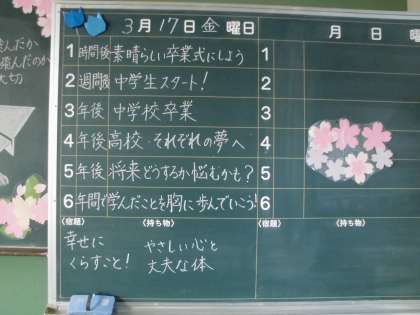 3月17日金曜日
1時間後素晴らしい卒業式にしよう
2週間後中学生スタート!
3年後中学校卒業
4年後高校・それぞれの夢へ
5年後将来どうするか悩むかも?
6年間で学んだことを胸に歩んでいこう!
(宿題) (持ち物)
幸せに
くらすこと!
やさしい心と
丈夫な体
月 日 曜日
1
2
3
4
5
6
(宿題) (持ち物)
大切